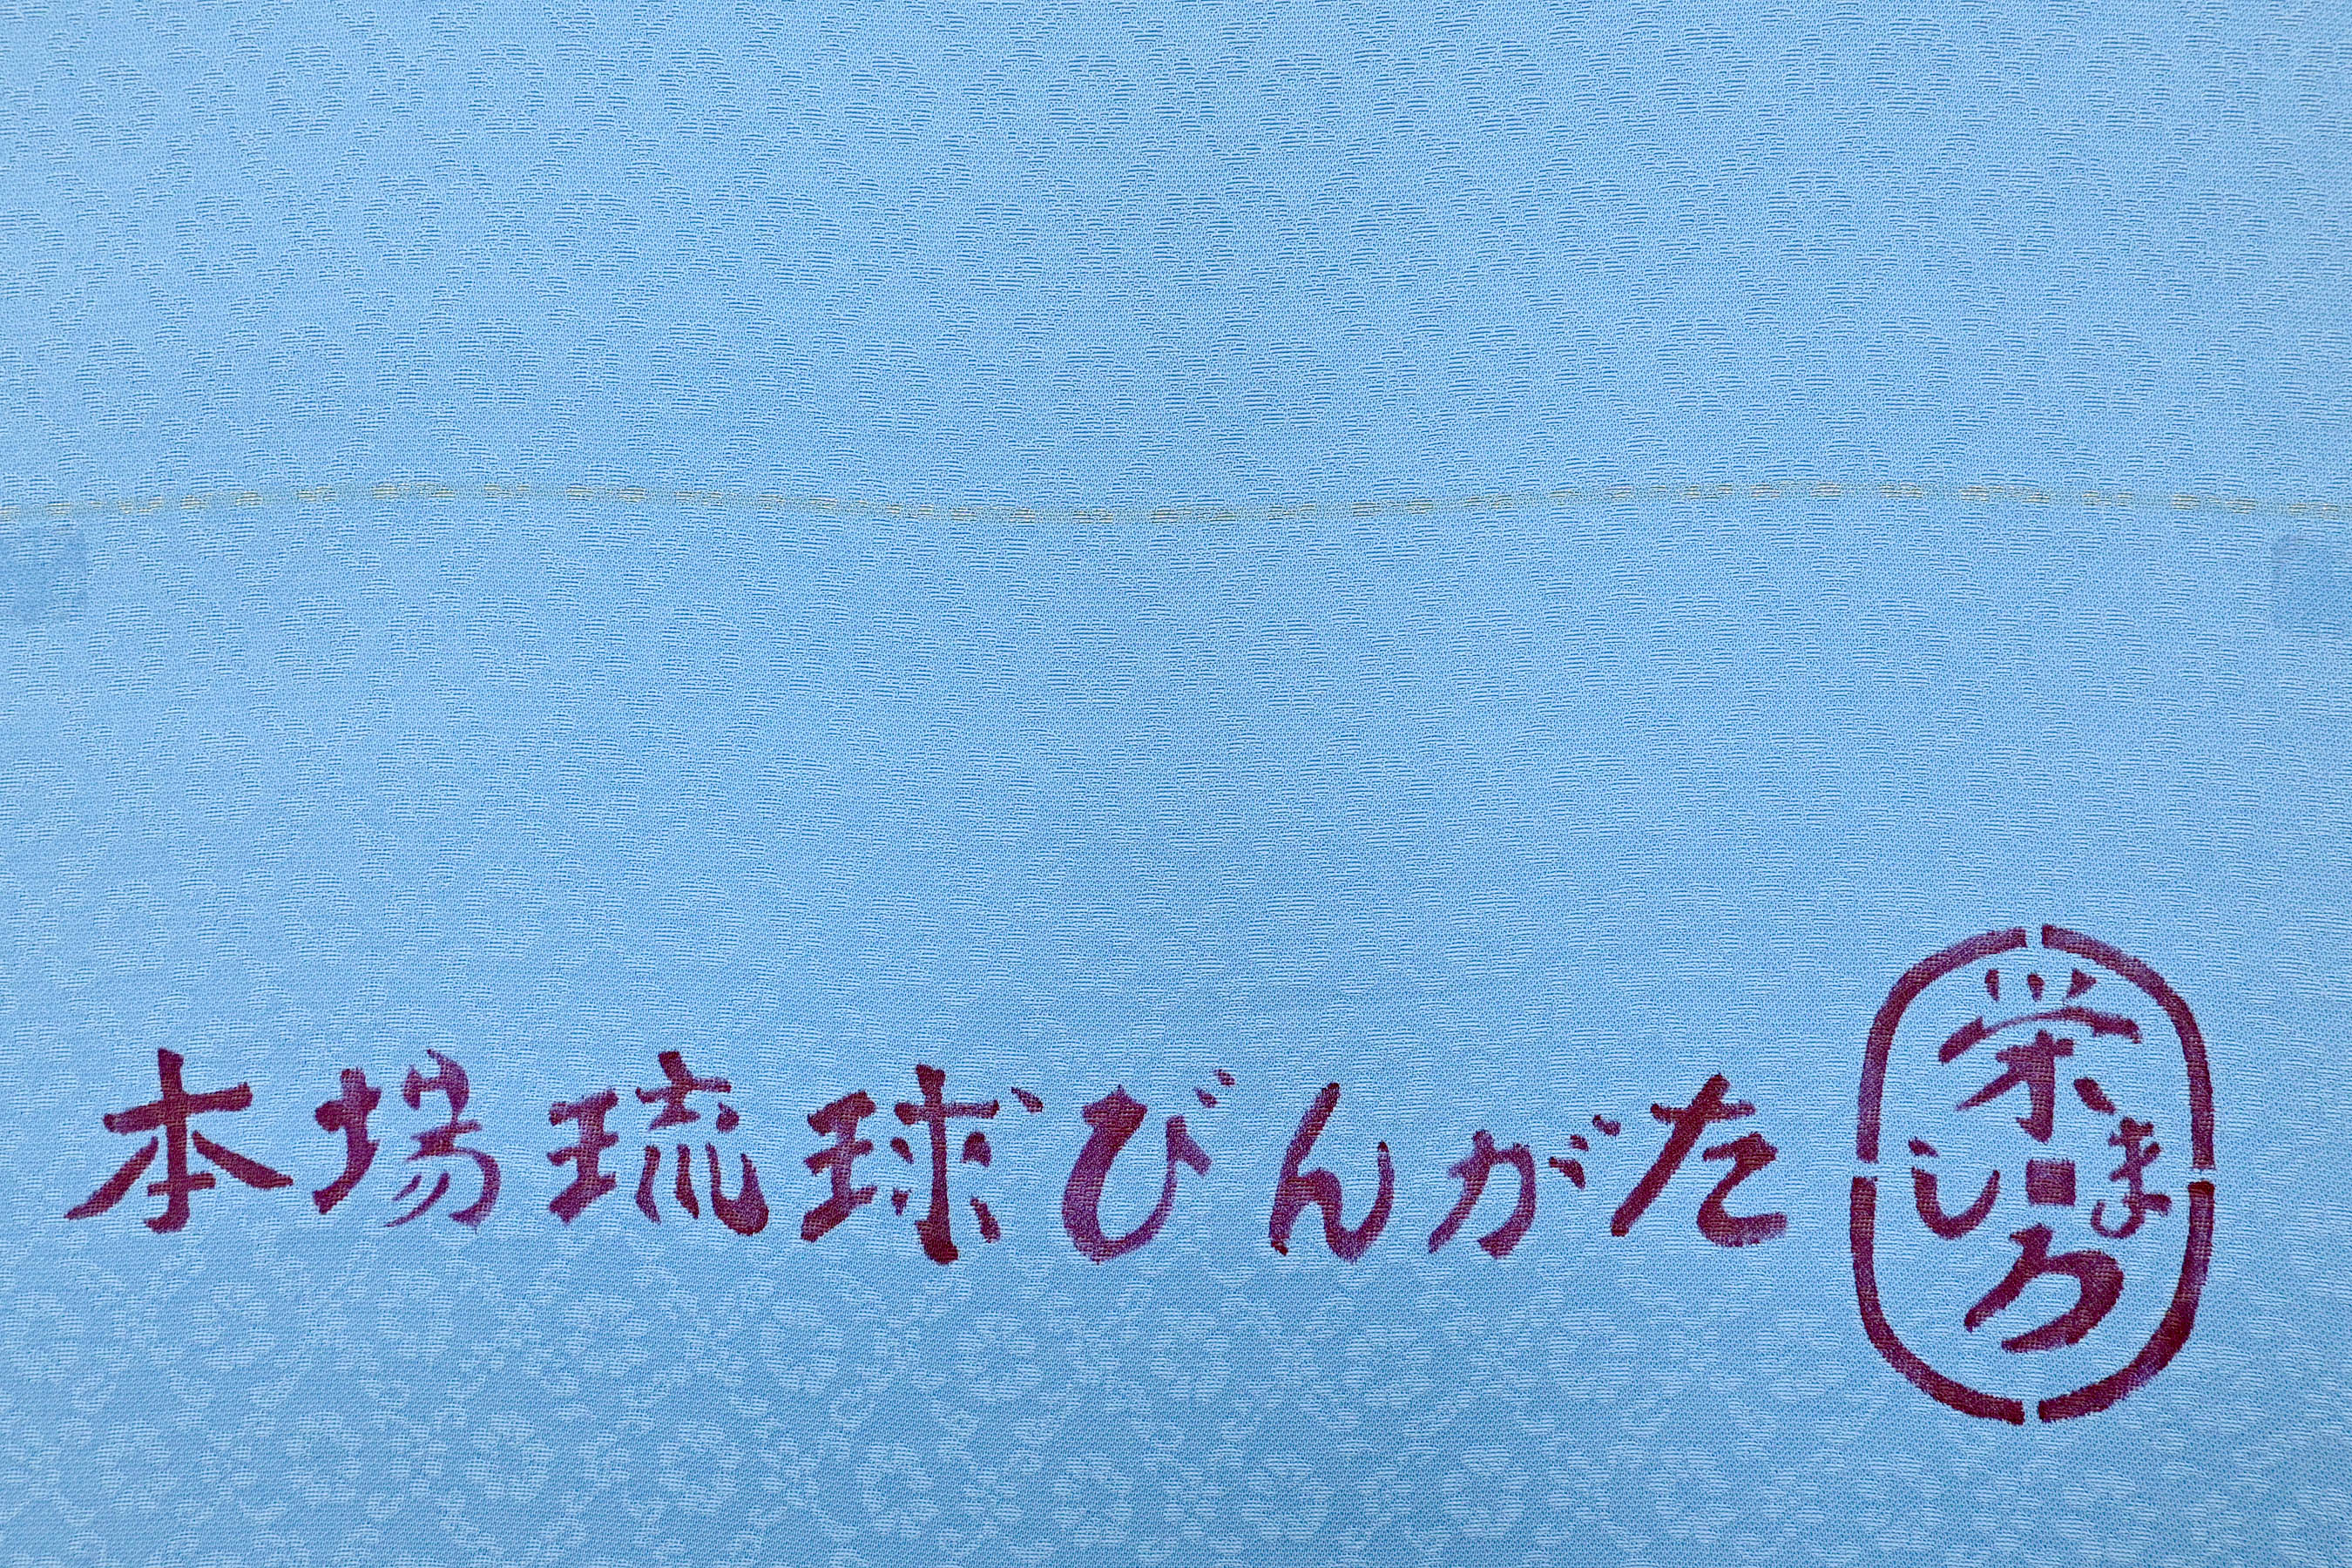 本場琉球びんがた
栄ましろ